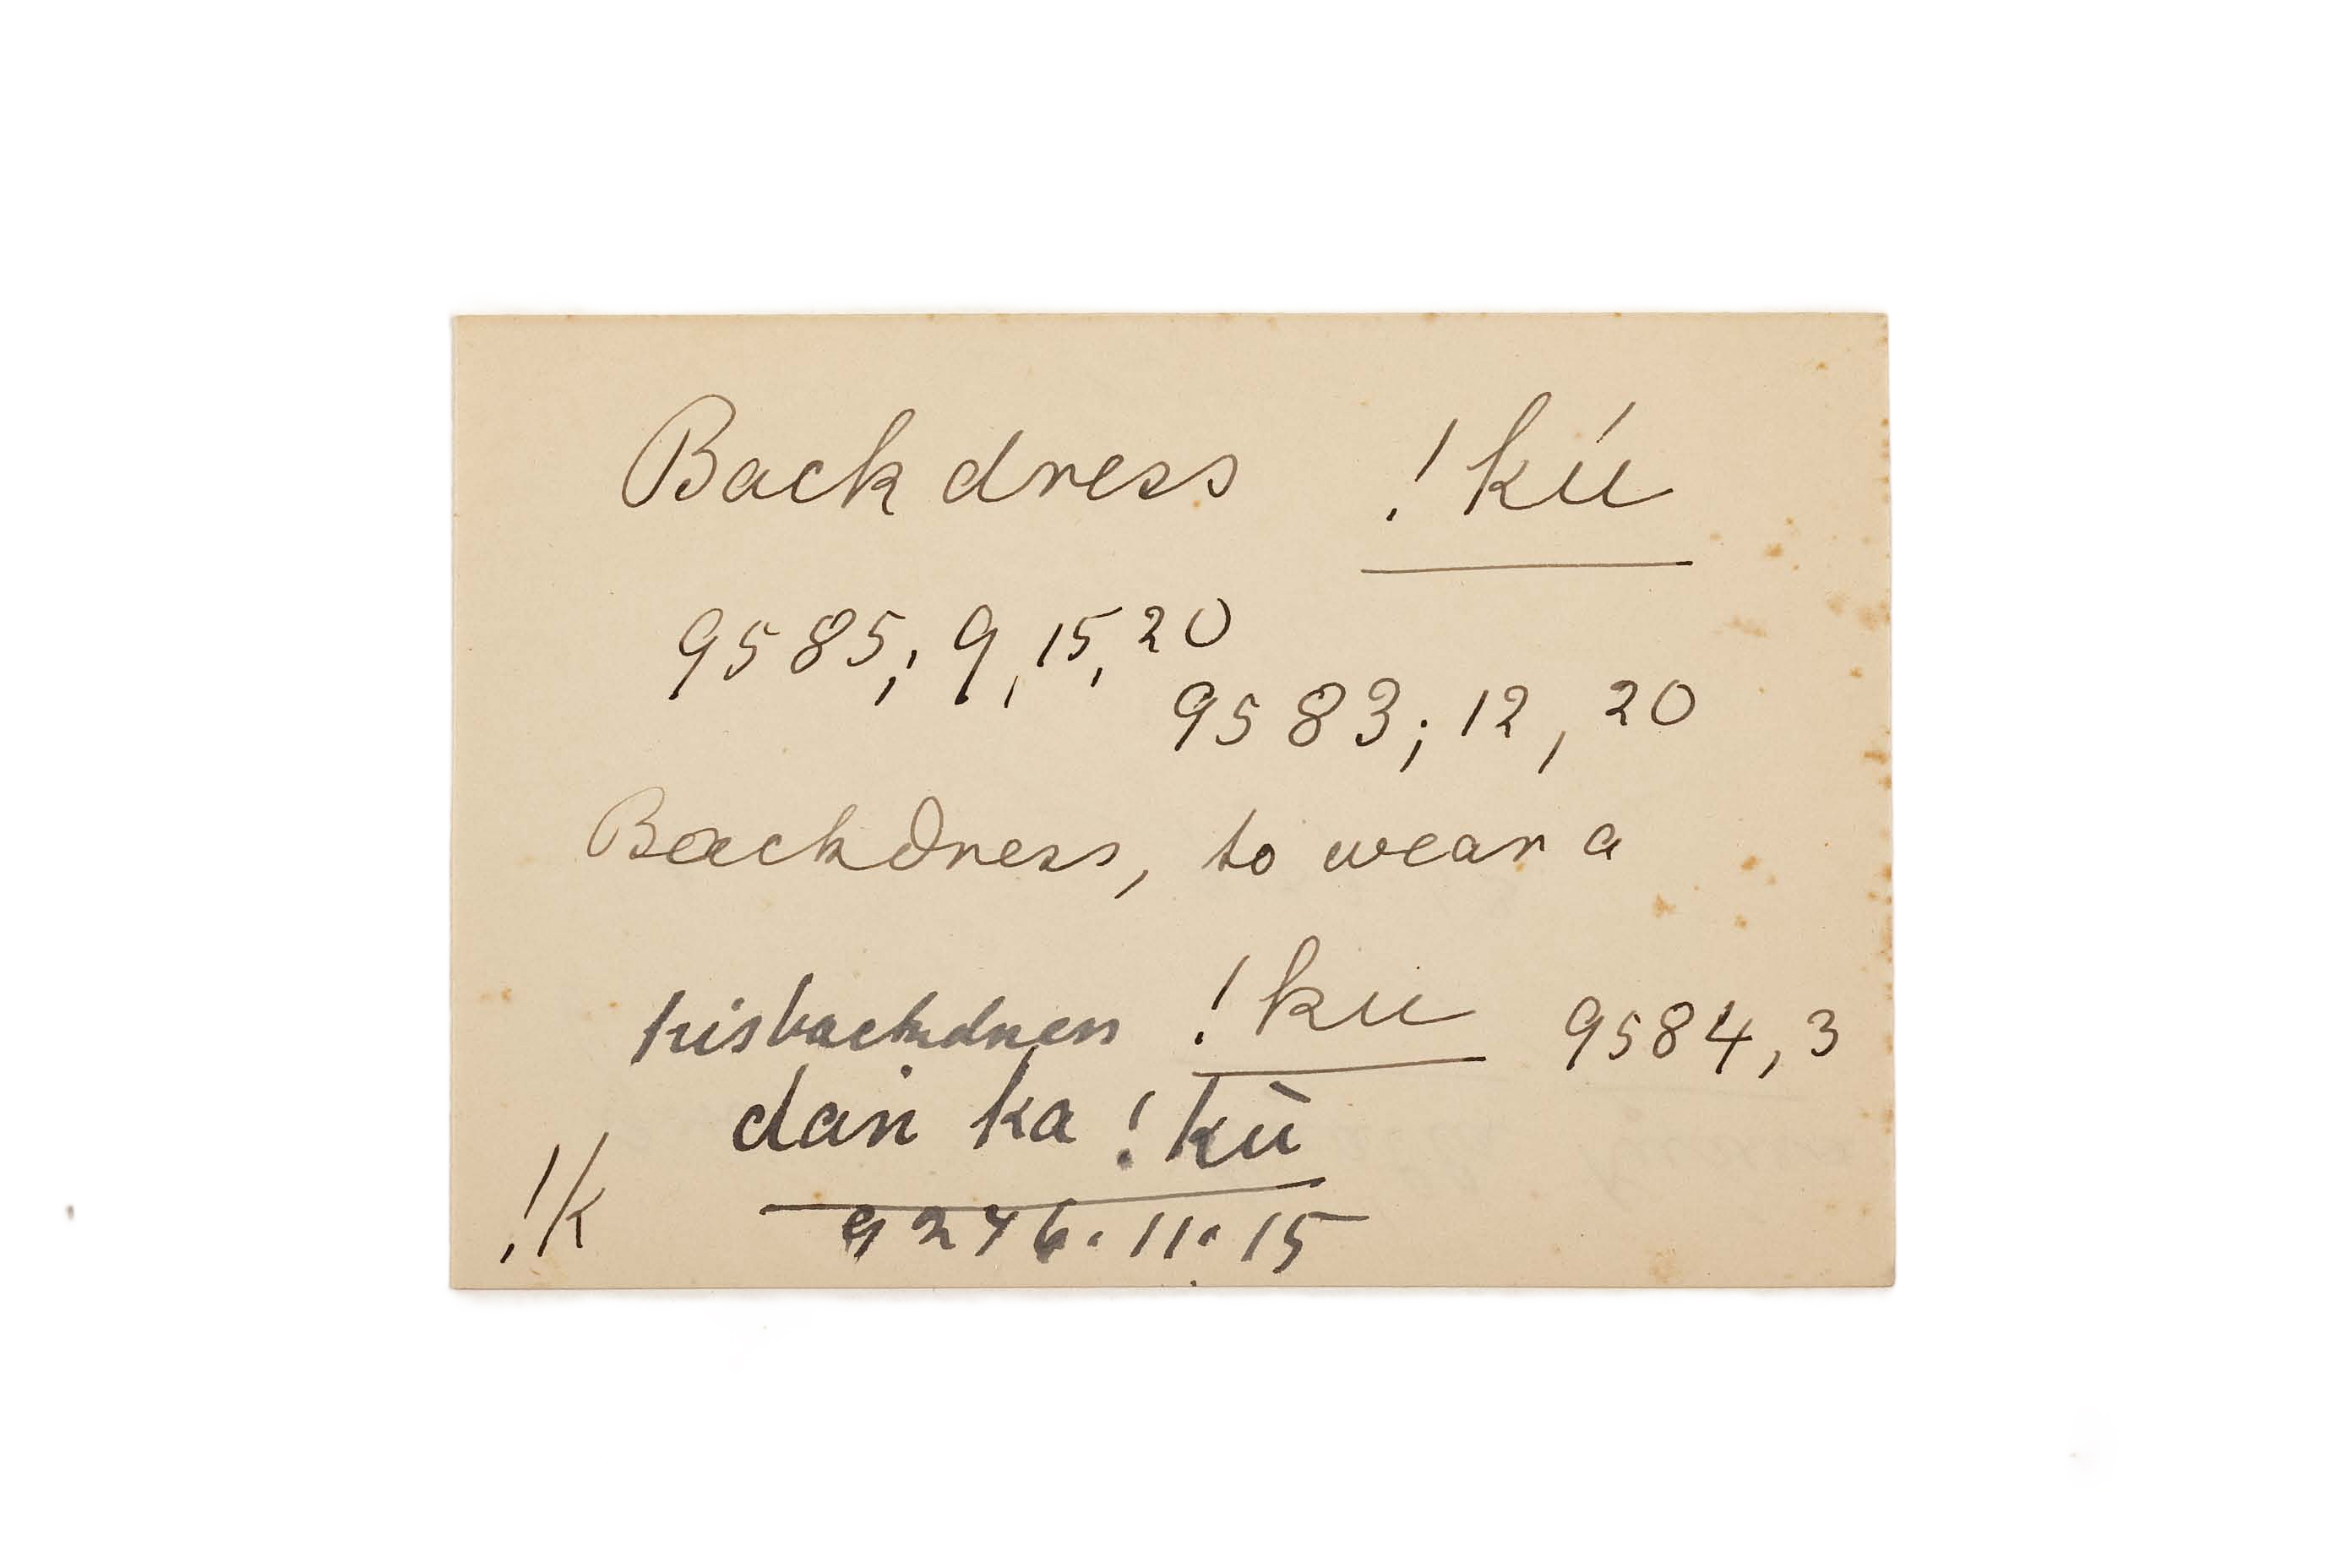 Back dress !kú
9585; 9, 15, 20
9583; 12, 20
Backdress, to wear a
!ku 9584, 3
hisbackdress
dan ka !kù
!k
9246. 11. 15